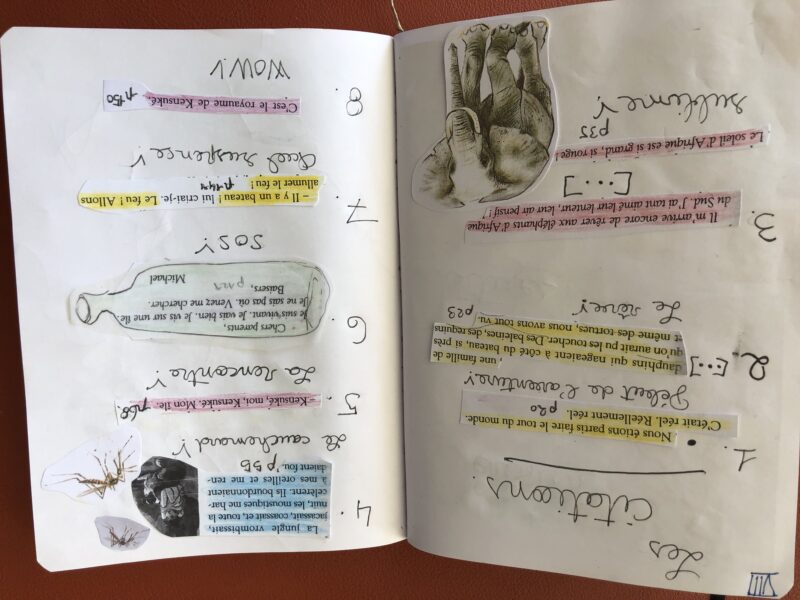 VIII
Les
citations
1.
Nous étions partis faire le tour du monde.
C'était réel. Réellement réel.
p20
Début de l'aventure !
2. [...] , une famille de
dauphins qui nageaient à côté du bateau, si près
qu'on aurait pu les toucher. Des baleines, des requins
et même des tortues, nous avons tout vu.
p23
Le rêve !
3.
Il m'arrive encore de rêver aux éléphants d'Afrique
du Sud. J'ai tant aimé leur lenteur, leur air pensif !
[...]
Le soleil d'Afrique est si grand, si rouge !
p35
sublime !
4.
La jungle vrombissait,
jacassait, coassait, et, toute la
nuit, les moustiques me har-
celèrent. Ils bourdonnaient
à mes oreilles et me ren-
daient fou.
p55
Le cauchemard !
5.
– Kensuké, moi, Kensuké. Mon île. p68
La rencontre !
6
Chers parents
Je suis vivant. Je vais bien. Je vis sur une île
Je ne sais pas où. Venez me chercher.
Baisers,
Michael
SOS !
7.
– Il y a un bateau ! lui criai-je. Le feu ! Allons
allumer le feu !
Quel suspence !
8
C'est le royaume de Kensuké. p150
WOW !